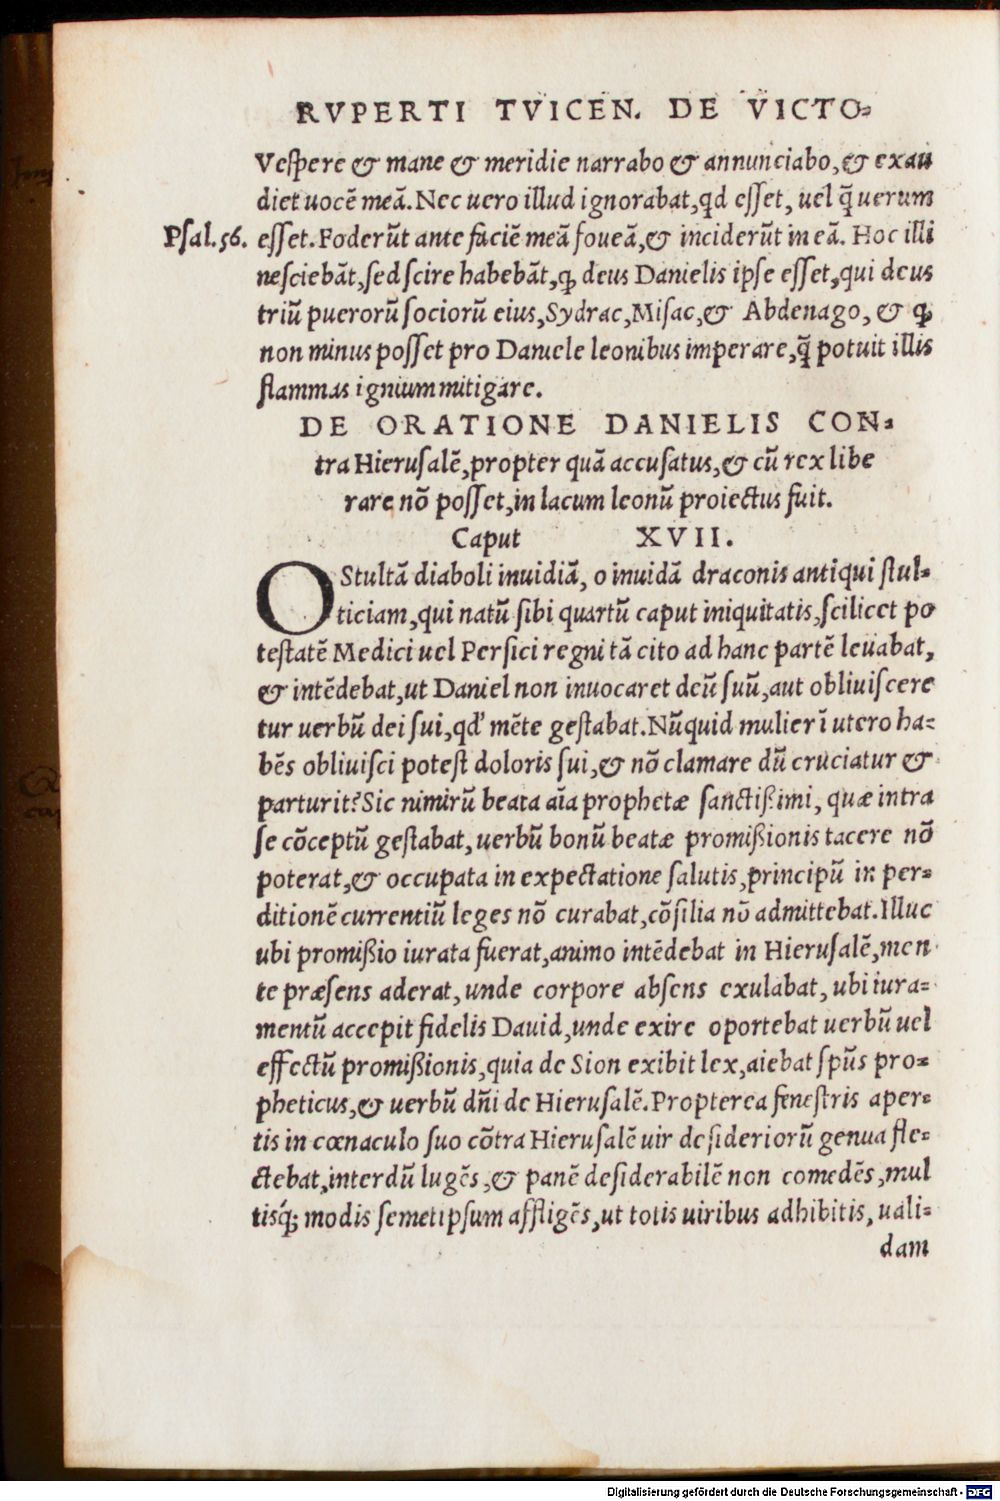 RVPERTI TVICEN. DE VICTO-
Vespere & mane & meridie narrabo & annunciabo, & exau
diet uocē meā. Nec uero illud ignorabat, qd esset, uel q̄ uerum
Psal. 56. esset. Foderūt ante faciē meā foueā, & inciderūt in eā. Hoc illi
nesciebāt, sed scire habebāt, ꝙ deus Danielis ipse esset, qui deus
triū puerorū sociorū eius, Sydrac, Misac, & Abdenago, & ꝙ
non minus posset pro Daniele leonibus imperare, q̄ potuit illis
flammas ignium mitigare.
DE ORATIONE DANIELIS CON-
tra Hierusalē, propter quā accusatus, & cū rex libe
rare nō posset, in lacum leonū proiectus fuit.
Caput XVII.
O Stultā diaboli inuidiā, o inuidā draconis antiqui stul-
ticiam, qui natū sibi quartū caput iniquitatis, scilicet po
testatē Medici uel Persici regni tā cito ad hanc partē leuabat,
& intēdebat, ut Daniel non inuocaret deū suū, aut obliuiscere
tur uerbū dei sui, qd' mēte gestabat. Nūquid mulier ī utero ha-
bēs obliuisci potest doloris sui, & nō clamare dū cruciatur &
parturit? Sic nimirū beata aīa prophetæ sanctißimi, quæ intra
se cōceptū gestabat, uerbū bonū beatæ promißionis tacere nō
poterat, & occupata in expectatione salutis, principū in per-
ditionē currentiū leges nō curabat, cōsilia nō admittebat. Illuc
ubi promißio iurata fuerat, animo intēdebat in Hierusalē, men
te præsens aderat, unde corpore absens exulabat, ubi iura-
mentū accepit fidelis Dauid, unde exire oportebat uerbū uel
effectū promißionis, quia de Sion exibit lex, aiebat spūs pro-
pheticus, & uerbū dñi de Hierusalē. Propterea fenestris aper-
tis in cœnaculo suo cōtra Hierusalē uir desideriorū genua fle-
ctebat, interdū lugēs, & panē desiderabilē non comedēs, mul
tisq́; modis semetipsum affligēs, ut totis uiribus adhibitis, uali-
dam
Digitalisierung gefördert durch die Deutsche Forschungsgemeinschaft - DFG